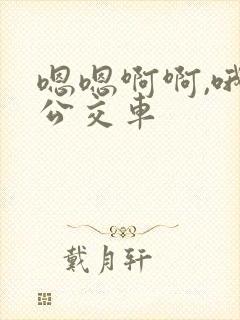 嗯嗯啊啊,哦
公交車
戴月轩